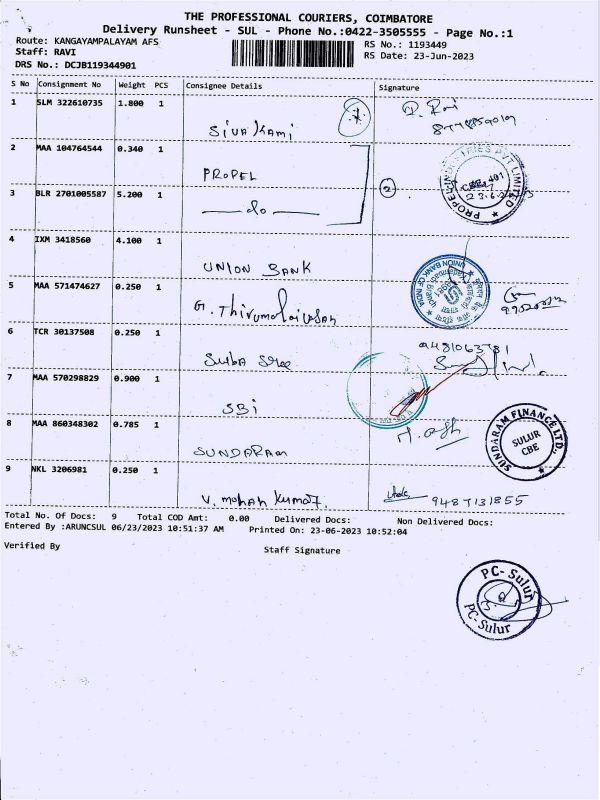 THE PROFESSIONAL COURIERS, COIMBATORE
Delivery Runsheet - SUL - Phone No.:0422-3505555 - Page No.:1
Route: KANGAYAMPALAYAM AFS
RS No.: 1193449
Staff: RAVI
RS Date: 23-Jun-2023
DRS No.: DCJB119344901
S No Consignment No Weight PCS Consignee Details Signature
1 SLM 322610735 1.800 1
Sivakami
2 MAA 104764544 0.340 1
PROPEL
PROPEL INDUSTRIES PVT LIMITED
3 BLR 2701005587 5.200 1
do
2
4 IXM 3418560 4.100 1
UNION BANK
UNION BANK OF INDIA
5 MAA 571474627 0.250 1
G. Thirumalaivasan
6 TCR 30137508 0.250 1
Suba Sree
9481063781
7 MAA 570298829 0.900 1
SBi
8 MAA 860348302 0.785 1
SUNDARAM
SUNDARAM FINANCE LTD.,
SULUR
CBE
9 NKL 3206981 0.250 1
V. mohan kumar.
9487131855
Total No. Of Docs: 9 Total COD Amt: 0.00 Delivered Docs: Non Delivered Docs:
Entered By :ARUNCSUL 06/23/2023 10:51:37 AM Printed On: 23-06-2023 10:52:04
Verified By Staff Signature
PC-Sulur
PC-Sulur